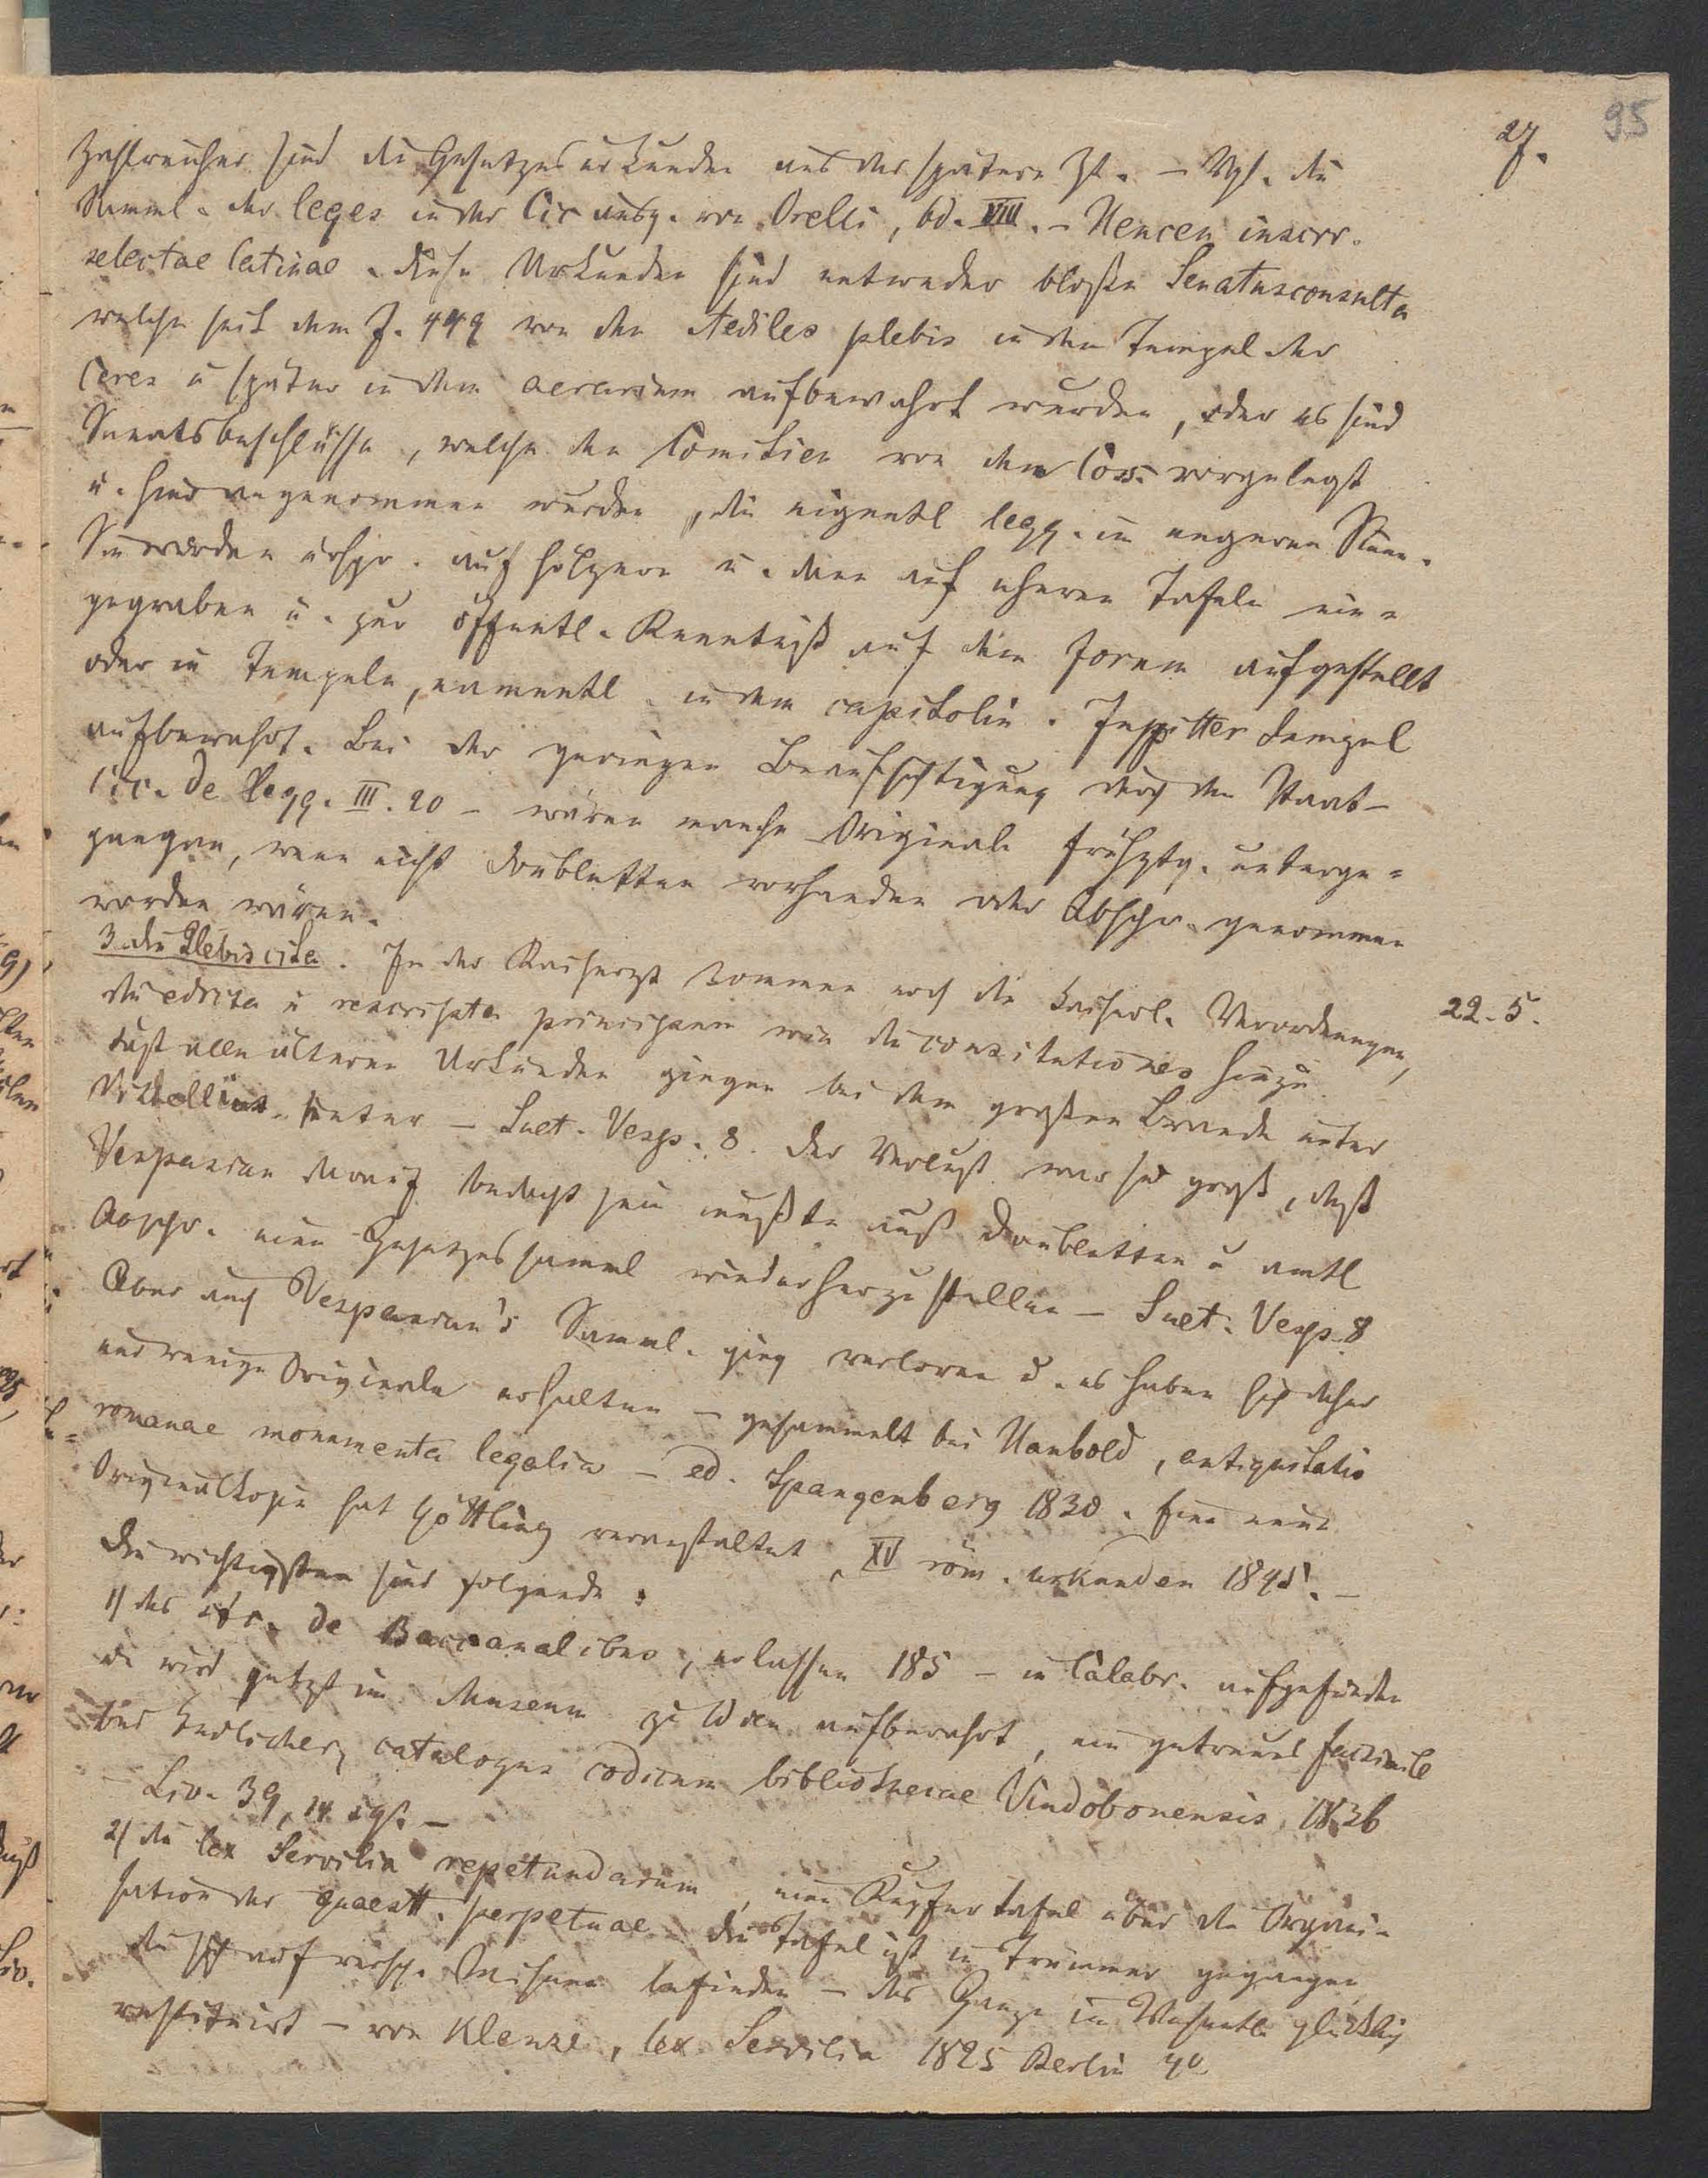 27. 95
Zahlreicher sind die Gesetzesurkunden aus der spätern Zt. – Vgl. die
Samml. der leges in der Cic ausg. von Orelli, bd. VIII. – Hencen inscrr.
selectae latinae. diese Urkunden sind entweder bloße Senatusconsulta
welche seit dem J. 449 von den Aediles plebis in dem Tempel der
Ceres u später in dem aerarium aufbewahrt wurden, oder es sind
Senatsbeschlüsse, welche den Comitien von den Coss. vorgelegt
u. hier angenommen wurden, die eigentl legg. im engeren Sinne.
Sie wurden urspr. auf hölzern u. dann auf ehernen Tafeln ein-
gegraben u. zur öffentl. Kenntniß auf dem Forum aufgestellt
oder in Tempeln, namentl. in dem capitolin. Juppitter tempel
aufbewahrt. Bei der geringen Beaufsichtigung durch den Staat –
Cic. de legg. III. 20 – wären manche Originale frühztg. unterge-
gangen, wenn nicht Doubletten vorhanden oder Abschr. genommen
worden wären.
3. die Plebiscita. In der Kaiserzt kommen noch die kaiserl. Verordnungen, 22. 5.
die edicta u rescripta principum wie die constitutiones hinzu.
Fast alle älteren Urkunden gingen bei dem großen Brande unter
Vitellius unter – Suet. Vesp. 8. Der Verlust war so groß, daß
Vespasian darauf bedacht sein mußte aus Doubletten u amtl
Abschr. eine Gesetzessamml wiederherzustellen – Suet. Vesp. 8
Aber auch Vespasian's Samml. ging verloren u. es haben sich daher
nur wenige Originale erhalten – gesammelt bei Haubold, antiquitatis
romanae monumenta legalia – ed. Spangenberg 1830. Eine neue
Originalkopie hat Göttling veranstaltet, XV röm. urkunden 1845. –
Die wichtigsten sind folgende:
1) das sc. de Baccanalibus, erlassen 185 – in Calabr. aufgefunden
u wird jetzt im Museum zu Wien aufbewahrt, ein getreues facsimile
bei Endlicher, catalogus codicum bibliothecae Vindobonensis, 1836
– Liv. 39, 14 sqs. –
2) die lex Servilia repetundarum, eine Kupfertafel über die Organi-
sation der quaestt. perpetuae die Tafel ist in Trümmer gegangen
die sich auf versch. Museen befinden – das Ganze im Wesentl. glücklich
restituirt – von Klenze, lex Servilia 1825 Berlin 4°